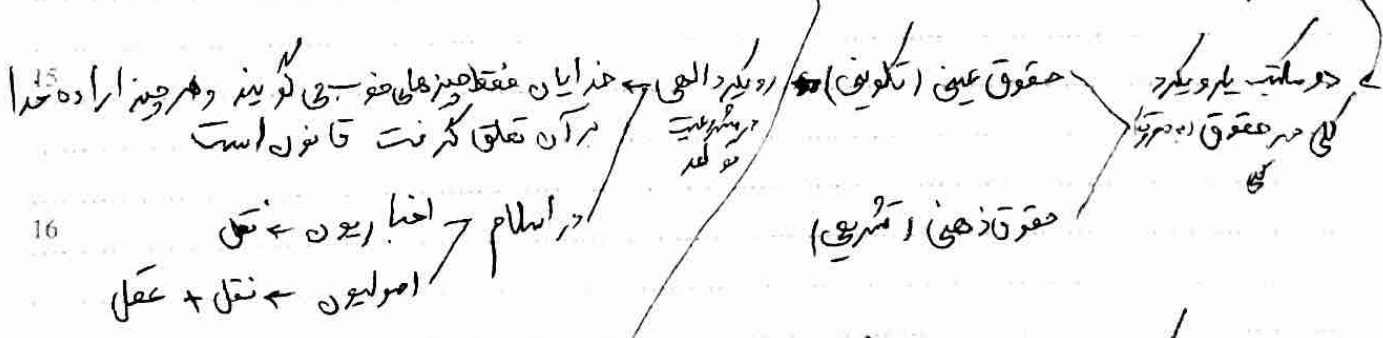 دو مکتب یا رویکرد
کلی در حقوق
حقوق عینی (تکوینی)
حقوق ذهنی (تشریعی)
رویکرد الهی ← خدایان فقط چیزهای خوب می گویند و هر چیز اراده خدا
در مشروعیت
قواعد
بر آن تعلق گرفت قانون است
در اسلام
اخباریون ← نقل
اصولیون ← نقل + عقل
15
16